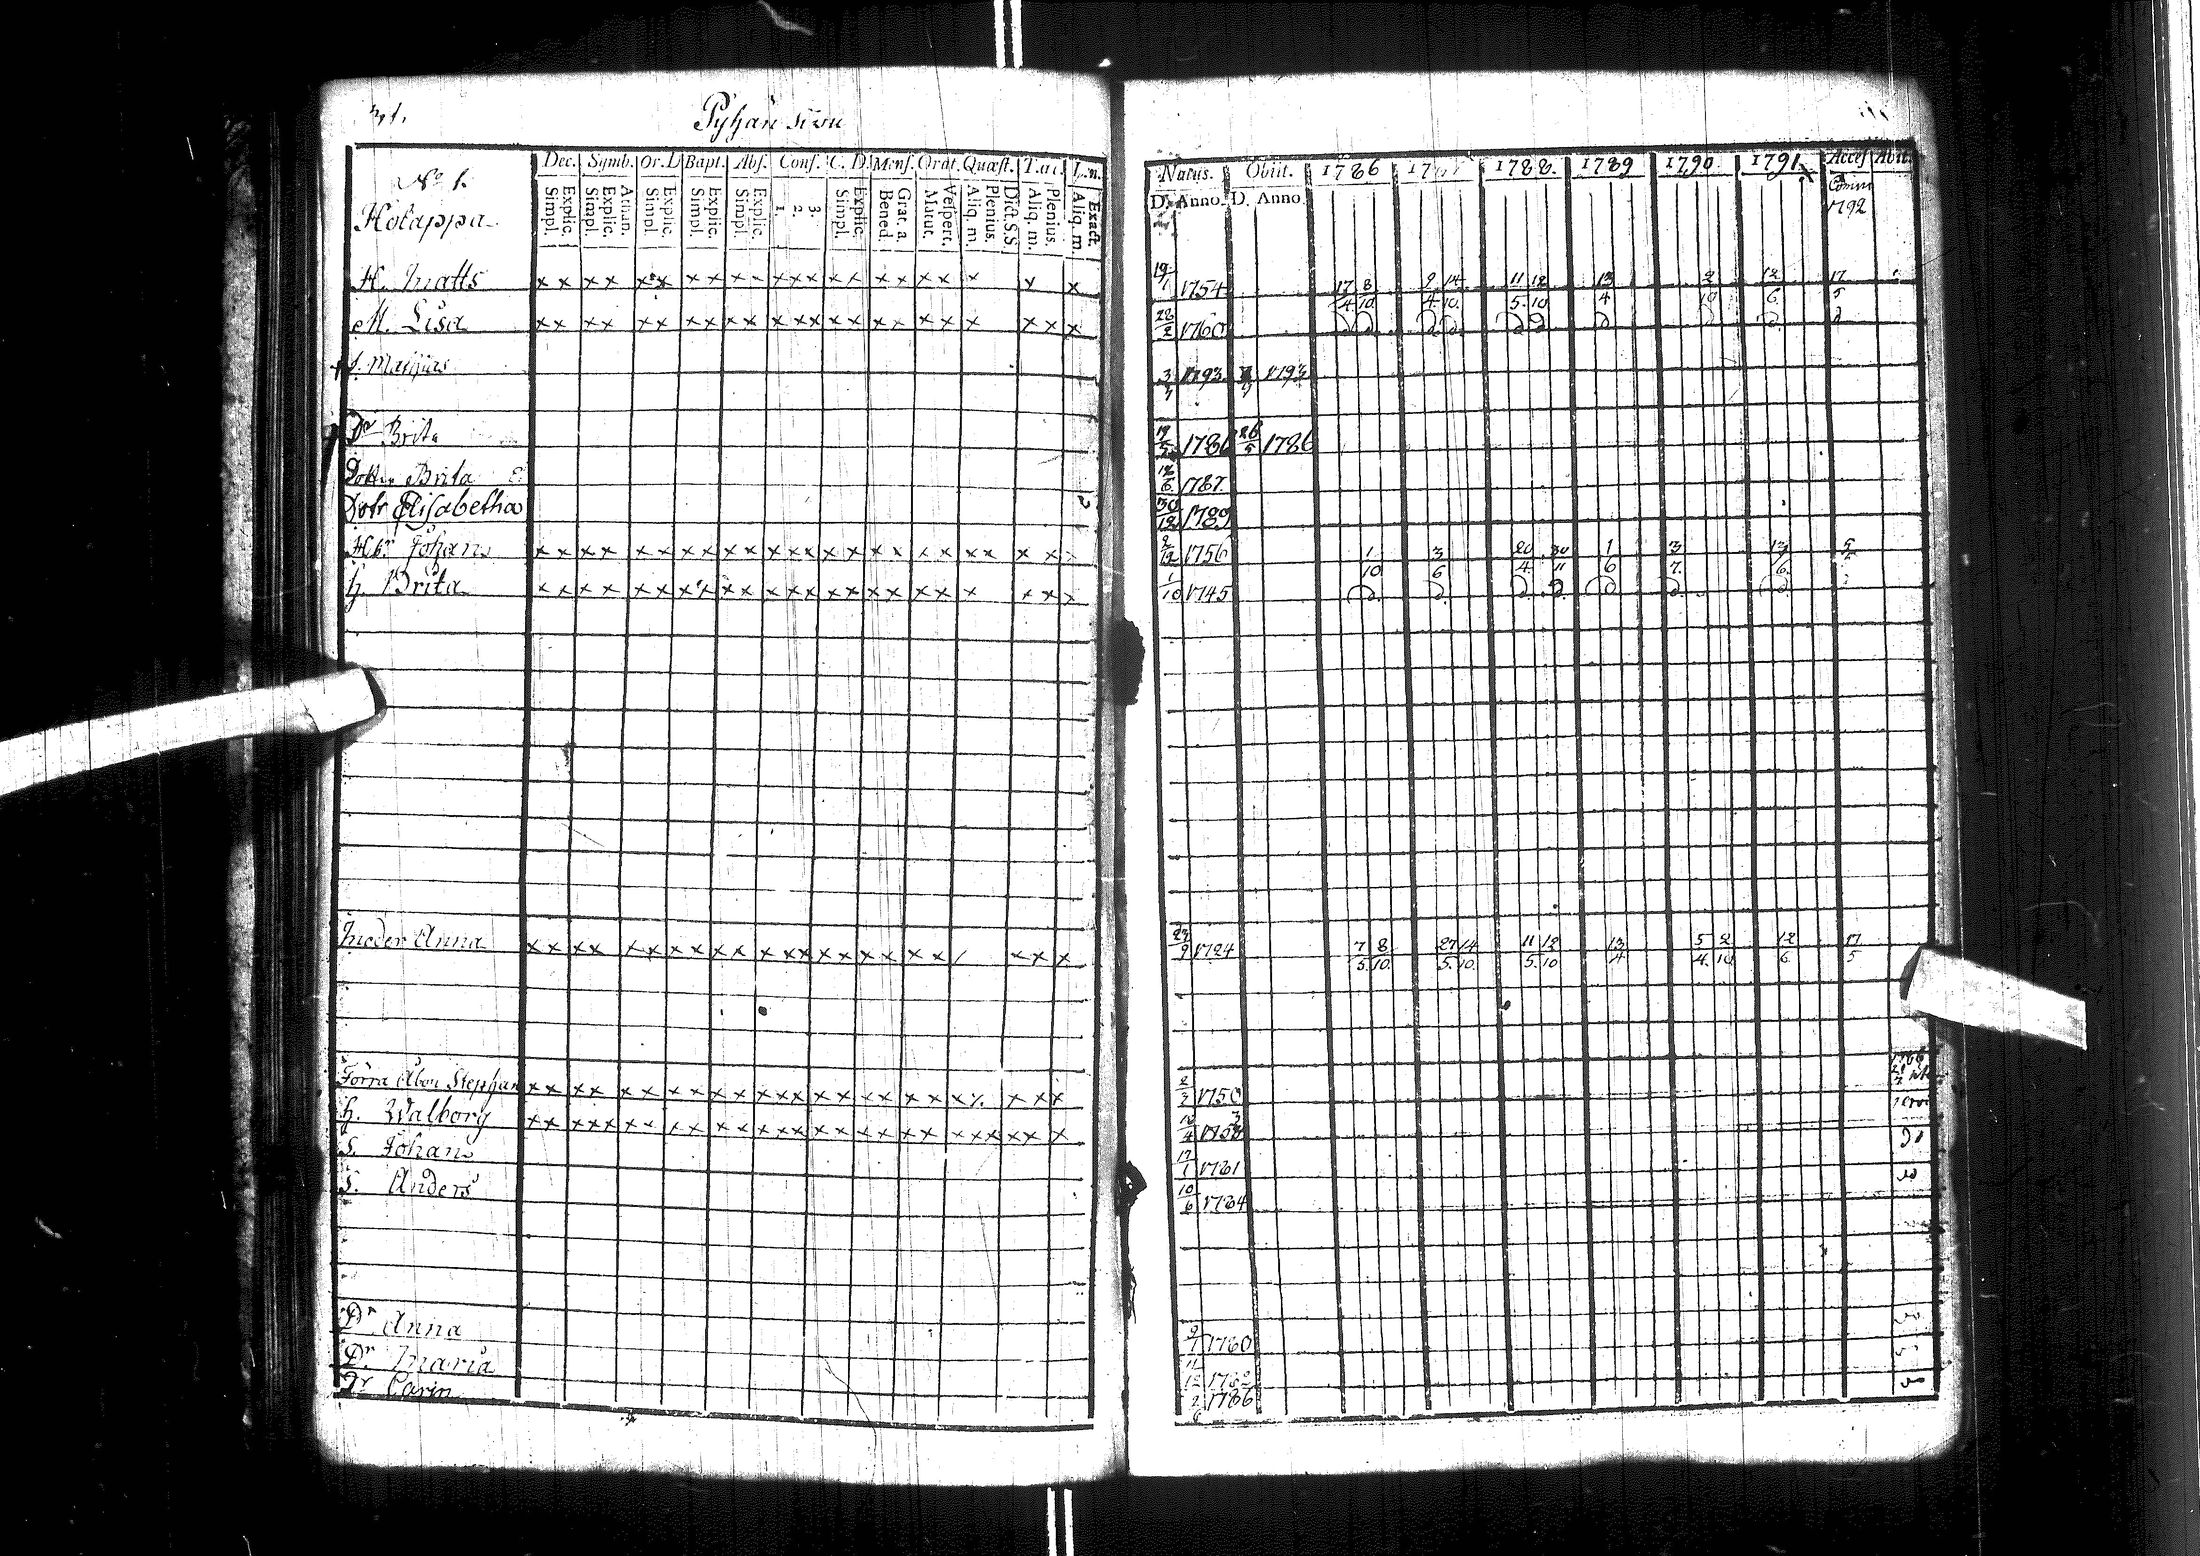 31.
Pÿhän sivu
No 1.
Holappa
Dec. Symb. Or. D Bapt. Abs. Conf. C. D. Mens. Orat. Quæst. T.
Explic. Simpl. Athan. Explic. Simpl. Explic. Simpl. Explic. Simpl. Explic. 3. 2. 1. Explic. Simpl. Grat. a. Bened. Vespert. Matut. Dict. S.S Plenius. Aliq. m. Plenius. Aliq. m. Exact. Aliq. m.
Natus. Obiit. 1786 1788. 1789 1790. 1791. Acces Abit.
D. Anno. D. Anno.
Comm 1792
H. Matts x x x x x x x x x x x x x x x x x x x x x x 1754 17/4 8/10 9/4 14/10 11/5 12/10 13/4 2/10 12/6 17/5
M. Lisa x x x x x x x x x x x x x x x x x x x x x x x x x 28/2 1760
3/7 1793 1793
Dr Brita 19/5 1786 26/5 1786
Dotter Brita 1787.
Dotr Elisabetha 30/12 1789
Hbr Johan x x x x x x x x x x x x x x x x x x x x x x x x x 2/12 1756 1/10 3/6 20/4 30/11 1/6 3/7 13/6 5
h. Brita x x x x x x x x x x x x x x x x x x x x x x x x 1/10 1745
Moder Anna x x x x x x x x x x x x x x x x x x x x x x x 1724 7/5 8/10 27/5 14/10 11/5 12/10 13/4 5/4 2/10 12/6 17/5
Förra Åbon Stephan x x x x x x x x x x x x x x x x x x x x x x x 2/3 1750
h. Walborg x x x x x x x x x x x x x x x x x x x x x x x x x x
S. Johan 17/1 1781
S. Anders 10/6 1784
Dr Anna 1780
Dr Maria 1782
Dr Carin 1786